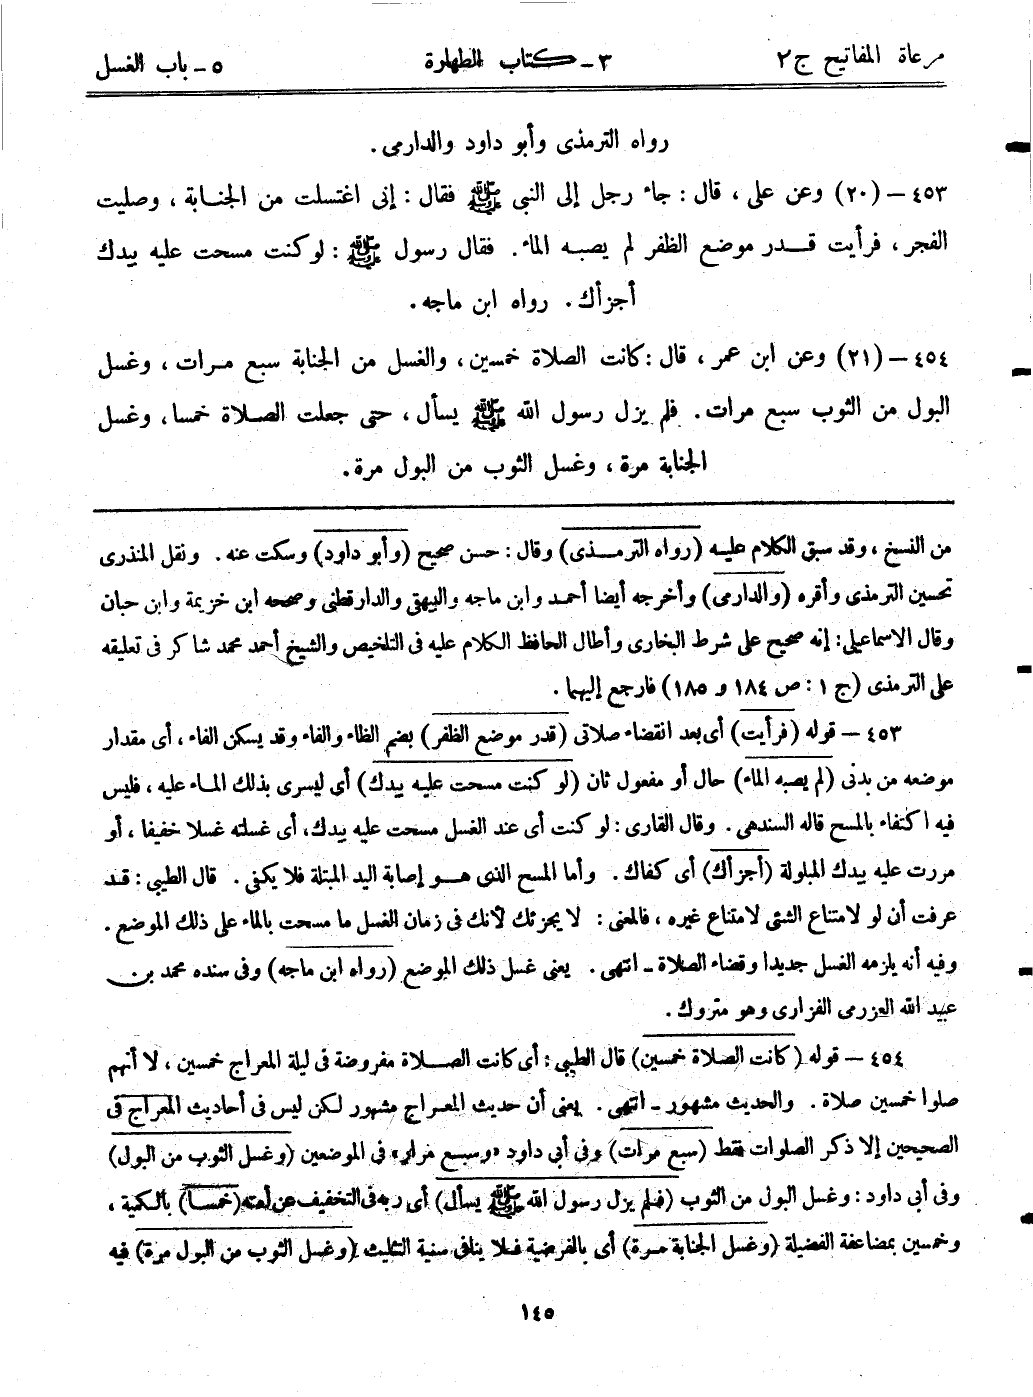 مرعاة المفاتيح ج٢
٣ ـ كتاب الطهارة
٥ ـ باب الغسل
رواه الترمذى وأبو داود والدارمى .
٤٥٣ – (٢٠) وعن على ، قال : جاء رجل إلى النبى ﷺ فقال : إنى اغتسلت من الجنابة ، وصليت
الفجر ، فرأيت قدر موضع الظفر لم يصبه الماء . فقال رسول ﷺ : لو كنت مسحت عليه بيدك
أجزأك . رواه ابن ماجه .
٤٥٤ – (٢١) وعن ابن عمر ، قال : كانت الصلاة خمسين ، والغسل من الجنابة سبع مرات ، وغسل
البول من الثوب سبع مرات . فلم يزل رسول الله ﷺ يسأل ، حتى جعلت الصلاة خمسا ، وغسل
الجنابة مرة ، وغسل الثوب من البول مرة .
من النسخ ، وقد سبق الكلام عليه (رواه الترمذى) وقال : حسن صحيح (وأبو داود) وسكت عنه . ونقل المنذرى
تحسين الترمذى وأقره (والدارمى) وأخرجه أيضا أحمد وابن ماجه والبيهقى والدارقطنى وصححه ابن خزيمة وابن حبان
وقال الاسماعيلى : إنه صحيح على شرط البخارى وأطال الحافظ الكلام عليه فى التلخيص والشيخ أحمد محمد شاكر فى تعليقه
على الترمذى (ج ١ : ص ١٨٤ و ١٨٥) فارجع إليهما .
٤٥٣ – قوله (فرأيت) أى بعد انقضاء صلاتى (قدر موضع الظفر) بضم الظاء والفاء وقد يسكن الفاء ، أى مقدار
موضعه من بدنى (لم يصبه الماء) حال أو مفعول ثان (لو كنت مسحت عليه بيدك) أى ليسرى بذلك الماء عليه ، فليس
فيه اكتفاء بالمسح قاله السندهى . وقال القارى : لو كنت أى عند الغسل مسحت عليه بيدك، أى غسلته غسلا خفيفا ، أو
مررت عليه بيدك المبلولة (أجزأك) أى كفاك . وأما المسح الذى هو إصابة اليد المبتلة فلا يكفى . قال الطيبى : قد
عرفت أن لو لامتناع الشئى لامتناع غيره ، فالمعنى : لا يجزئك لأنك فى زمان الغسل ما مسحت بالماء على ذلك الموضع .
وفيه أنه يلزمه الغسل جديدا وقضاء الصلاة ـ انتهى . يعنى غسل ذلك الموضع (رواه ابن ماجه) وفى سنده محمد بن
عبيد الله العزرمى الفزارى وهو متروك .
٤٥٤ – قوله (كانت الصلاة خمسين) قال الطيبى : أى كانت الصلاة مفروضة فى ليلة المعراج خمسين ، لا أنهم
صلوا خمسين صلاة . والحديث مشهور ـ انتهى . يعنى أن حديث المعراج مشهور لكن ليس فى أحاديث المعراج فى
الصحيحين إلا ذكر الصلوات فقط (سبع مرات) وفى أبى داود «وسبع مرار» فى الموضعين (وغسل الثوب من البول)
وفى أبى داود : وغسل البول من الثوب (فلم يزل رسول الله ﷺ يسأل) أى ربه فى التخفيف عن أمته (خمسا) بالكمية ،
وخمسين بمضاعفة الفضيلة (وغسل الجنابة مرة) أى بالفرضية فلا ينافى سنية التثليث (وغسل الثوب من البول مرة) فيه
١٤٥